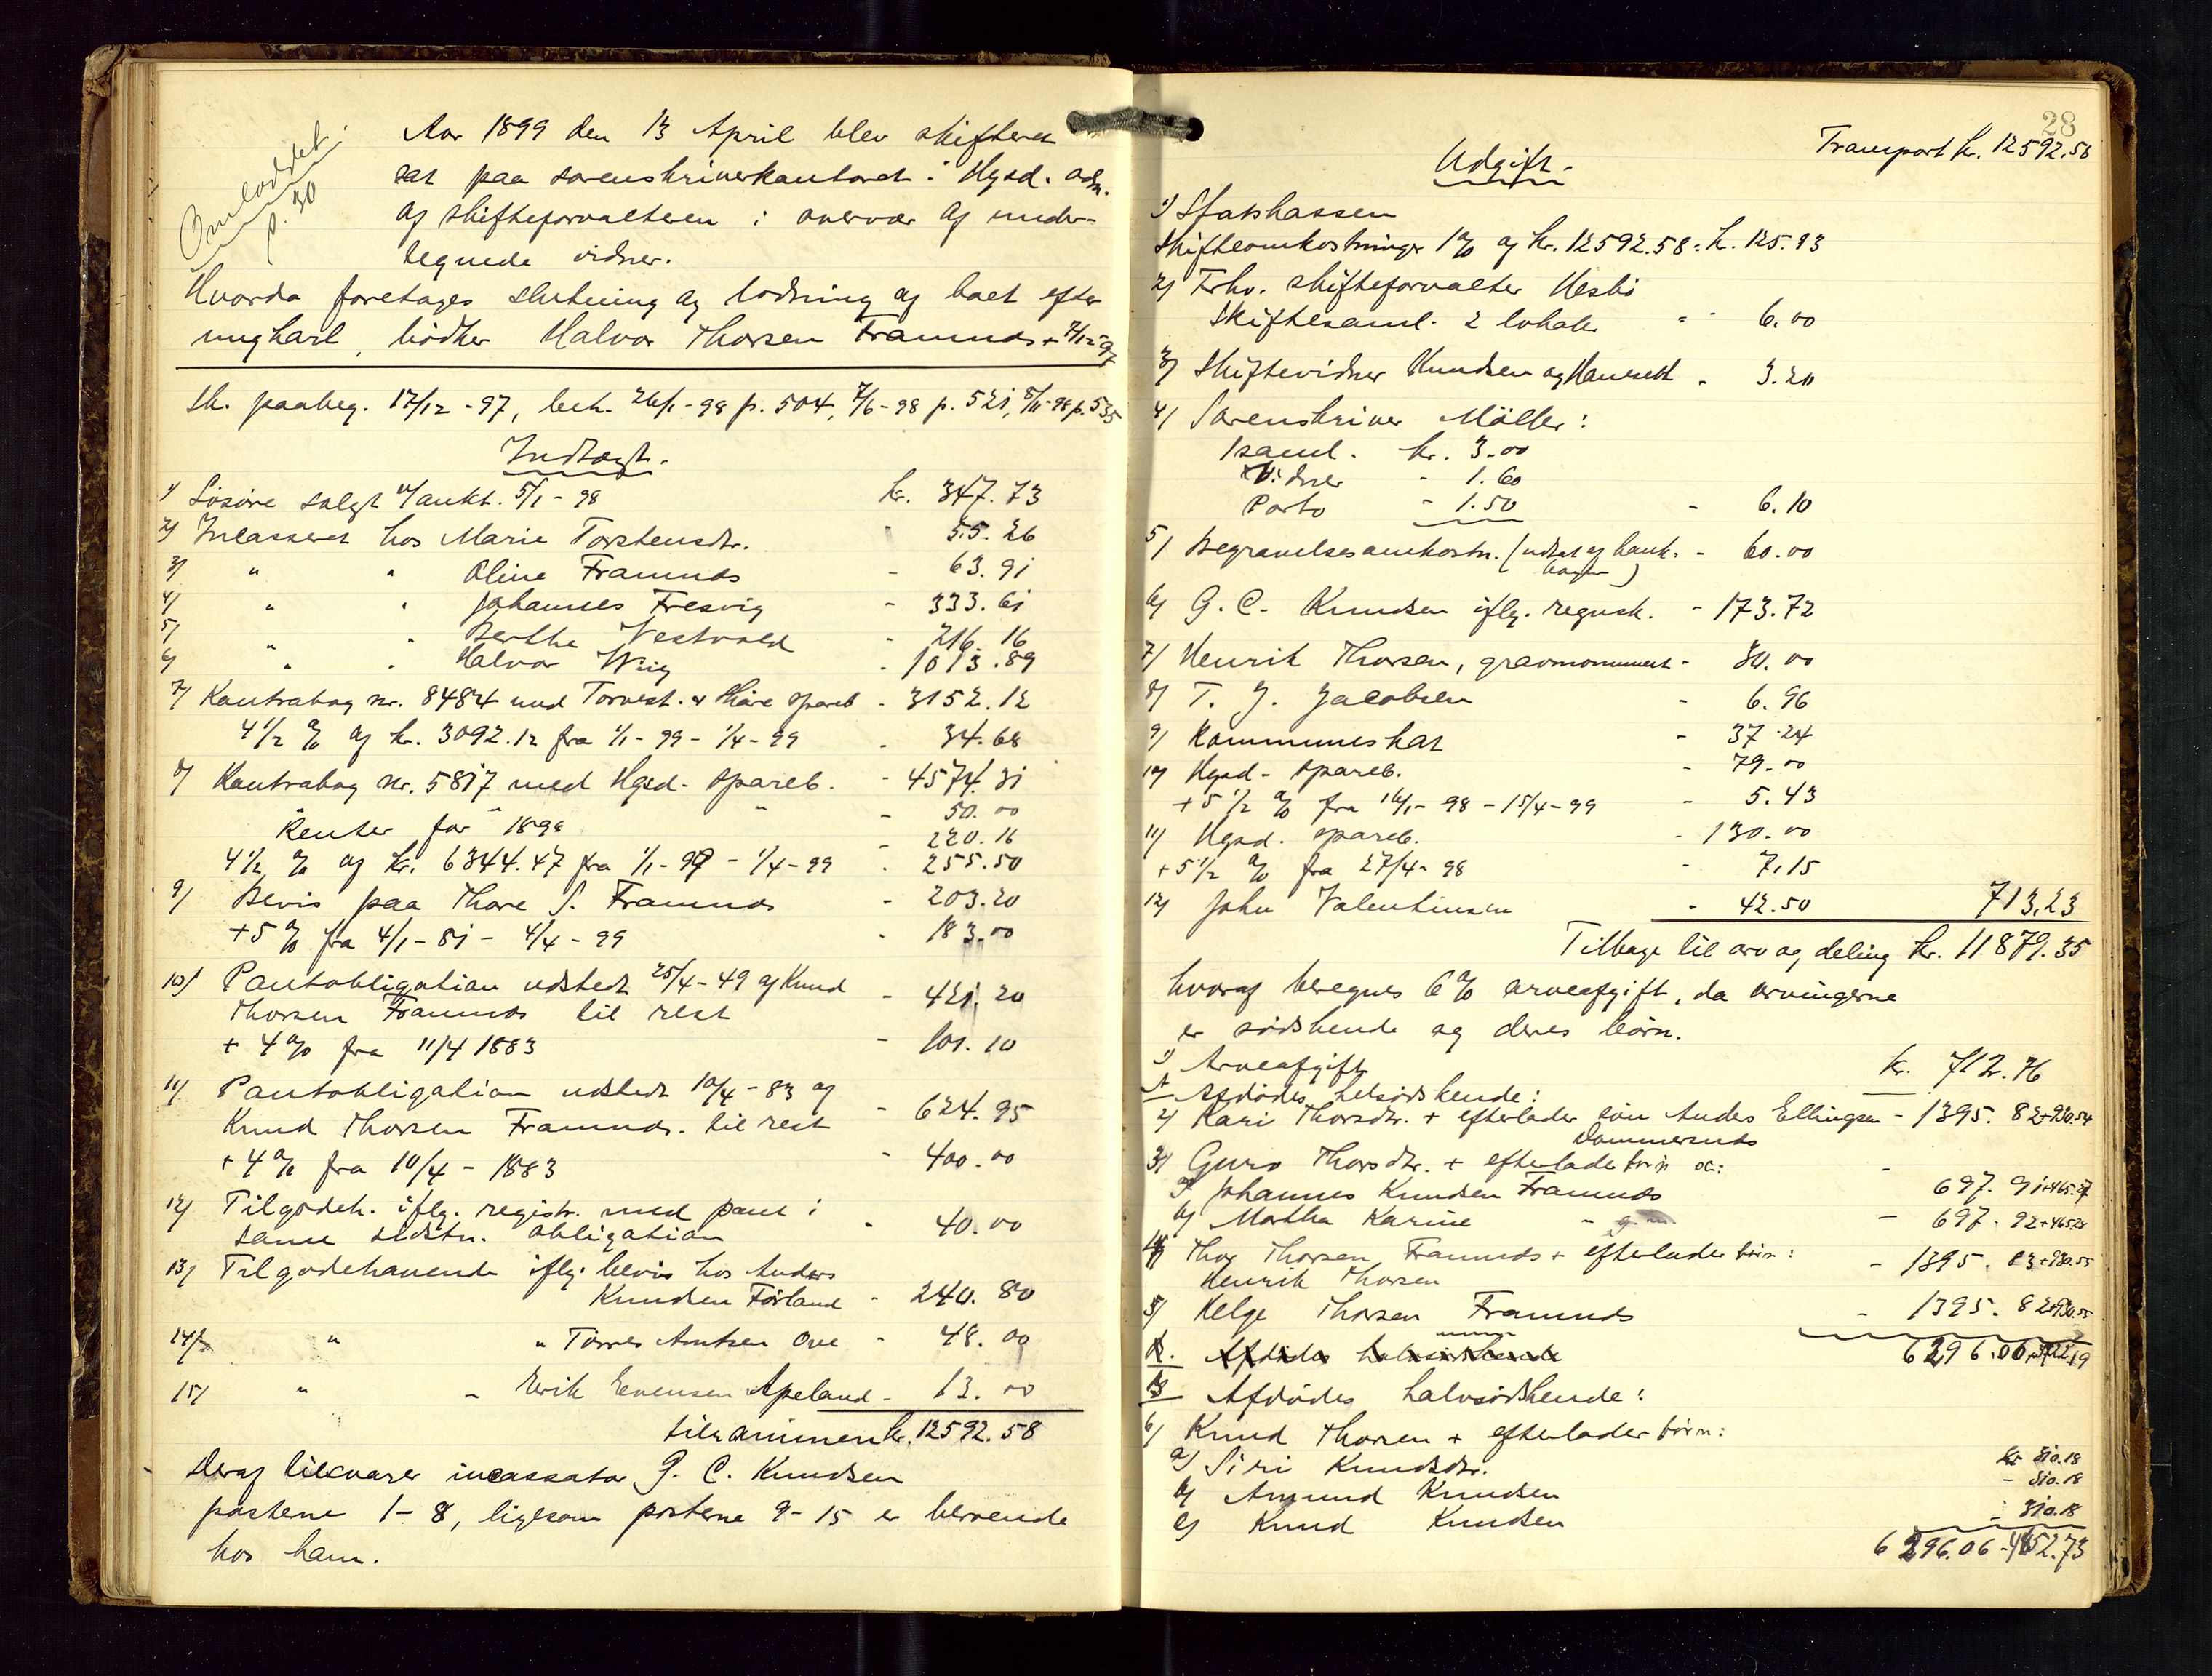 Omloddet
p. 30
Aar 1899 den 13 April blev skifteret
sat paa sorenskriverkontoret i Hgsd. adm.
af skifteforvalteren i overvær af under-
tegnede vidner.
Hvorda foretages slutning og lodning af boet efter
ungkarl, bödker Halvor Thorsen Framnæs + 7/12-97
Sk. paabeg. 17/12-97, beh. 26/1-98 p. 504, 7/6-98 p. 521, 8/11-98 p. 535
Indtægt.
1) Lösöre solgt v/aukt. 5/1-98 kr. 347.73
2) Incasseret hos Marie Torstensdtr. - 55.26
3) " " Oline Framnæs - 63.91
4) " " Johannes Fresvig - 333.61
5) " " Berthe Vestvold - 216.16
6) " " Halvor Wiig - 1013.89
7) Kontrabog nr. 8484 med Torvest. & Skåre spareb - 3152.12
4 1/2 % af kr. 3092.12 fra 1/1-99 - 1/4-99 - 34.68
8) Kontrabog nr. 5817 med Hgsd. spareb. - 4574.31
" " - 50.00
Renter for 1898 - 220.16
4 1/2 % af kr. 6344.47 fra 1/1-99 - 1/4-99 - 255.50
9) Bevis paa Thore S. Framnæs - 203.20
+5 % fra 4/1-81 - 4/4-99 - 183.00
10) Pantobligation udstedt 25/4-49 af Knud
Thorsen Framnæs til rest - 421.20
+ 4 % fra 11/4 1883 - 101.10
11) Pantobligation udstedt 10/4-83 af
Knud Thorsen Framnæs. til rest - 624.95
+ 4 % fra 10/4-1883 - 400.00
12) Tilgodeh. iflg. registr. med pant i
samme sidstn. obligation - 40.00
13) Tilgodehavende iflg. bevis hos Anders
Knudsen Förland - 240.80
14) " " Torres Amtsen Ove - 48.00
15) " - Erik Evensen Apeland - 13.00
tilsammen kr. 12592.58
Deraf tilsvarer incassator G. C. Knudsen
posterne 1-8, ligesom posterne 9-15 er beroende
hos ham.
28
Transport kr. 12592.58
Udgift.
1) Statskassen
Skifteomkostninger 1 % af kr. 12592.58 = kr. 125.93
2) Frhv. skifteforvalter Hesbö
Skiftesaml. 2 lokale - - 6.00
3) Skiftevidner Knudsen og - 3.20
4) Sorenskriver Möller:
1 saml. kr. 3.00
Vidner - 1.60
Porto - 1.50 - 6.10
5) Begravelsesomkostn. (udtat af bank-
bogen) - 60.00
6) G. C. Knudsen iflg. regnsk. - 173.72
7) Henrik Thorsen, gravmonument - 30.00
8) T. J. Jacobsen - 6.96
9) Kommuneskat - 37.24
10) Hgsd. spareb. - 79.00
+5 1/2 % fra 16/1-98 - 15/4-99 - 5.43
11) Hgsd. spareb. - 130.00
+5 1/2 % fra 27/4-98 - 7.15
12) John Valentinsen - 42.50 713.23
Tilbage til arv og deling kr. 11879.35
hvoraf beregnes 6 % arveafgift, da arvingerne
er södskende og deres börn.
1) Arveafgift kr. 712.76
A Afdödes helsödskende:
2) Kari Thorsdtr. + efterlader sön Andes Ellingsen - 1395.82+930.54
Dommersnæs
3) Guro Thorsdtr. + efterlader börn
a) Johannes Knudsen Framnæs 697.91+465.27
b) Martha Karine - - 697.92+465.28
4) Thor Thorsen Framnæs + efterlader börn:
Henrik Thorsen - 1395.83+930.55
5) Helge Thorsen Framnæs - 1395.82+930.55
6296.06
B. Afdödes halvsödskende
B Afdödes halvsödskende:
6) Knud Thorsen + efterlader börn:
a) Siri Knudsdtr. kr 310.18
b) Amund Knudsen - 310.18
c) Knud Knudsen - 310.18
6296.06 - 4652.73